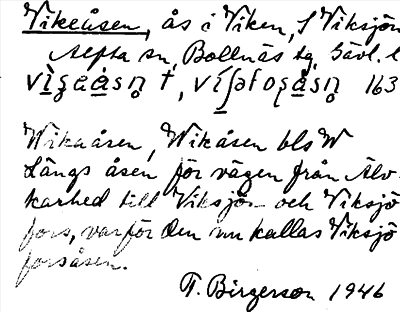 Vikeåsen, ås i Viken, f Viksjön
Alfta sn, Bollnäs tg, Gävl. l
163
Wikaåsen, Wikåsen bls W
Längs åsen för vägen från Älv-
karhed till Viksjö- och Viksjö
fors, varför den nu kallas Viksjö
forsåsen.
T. Birgerson 1946